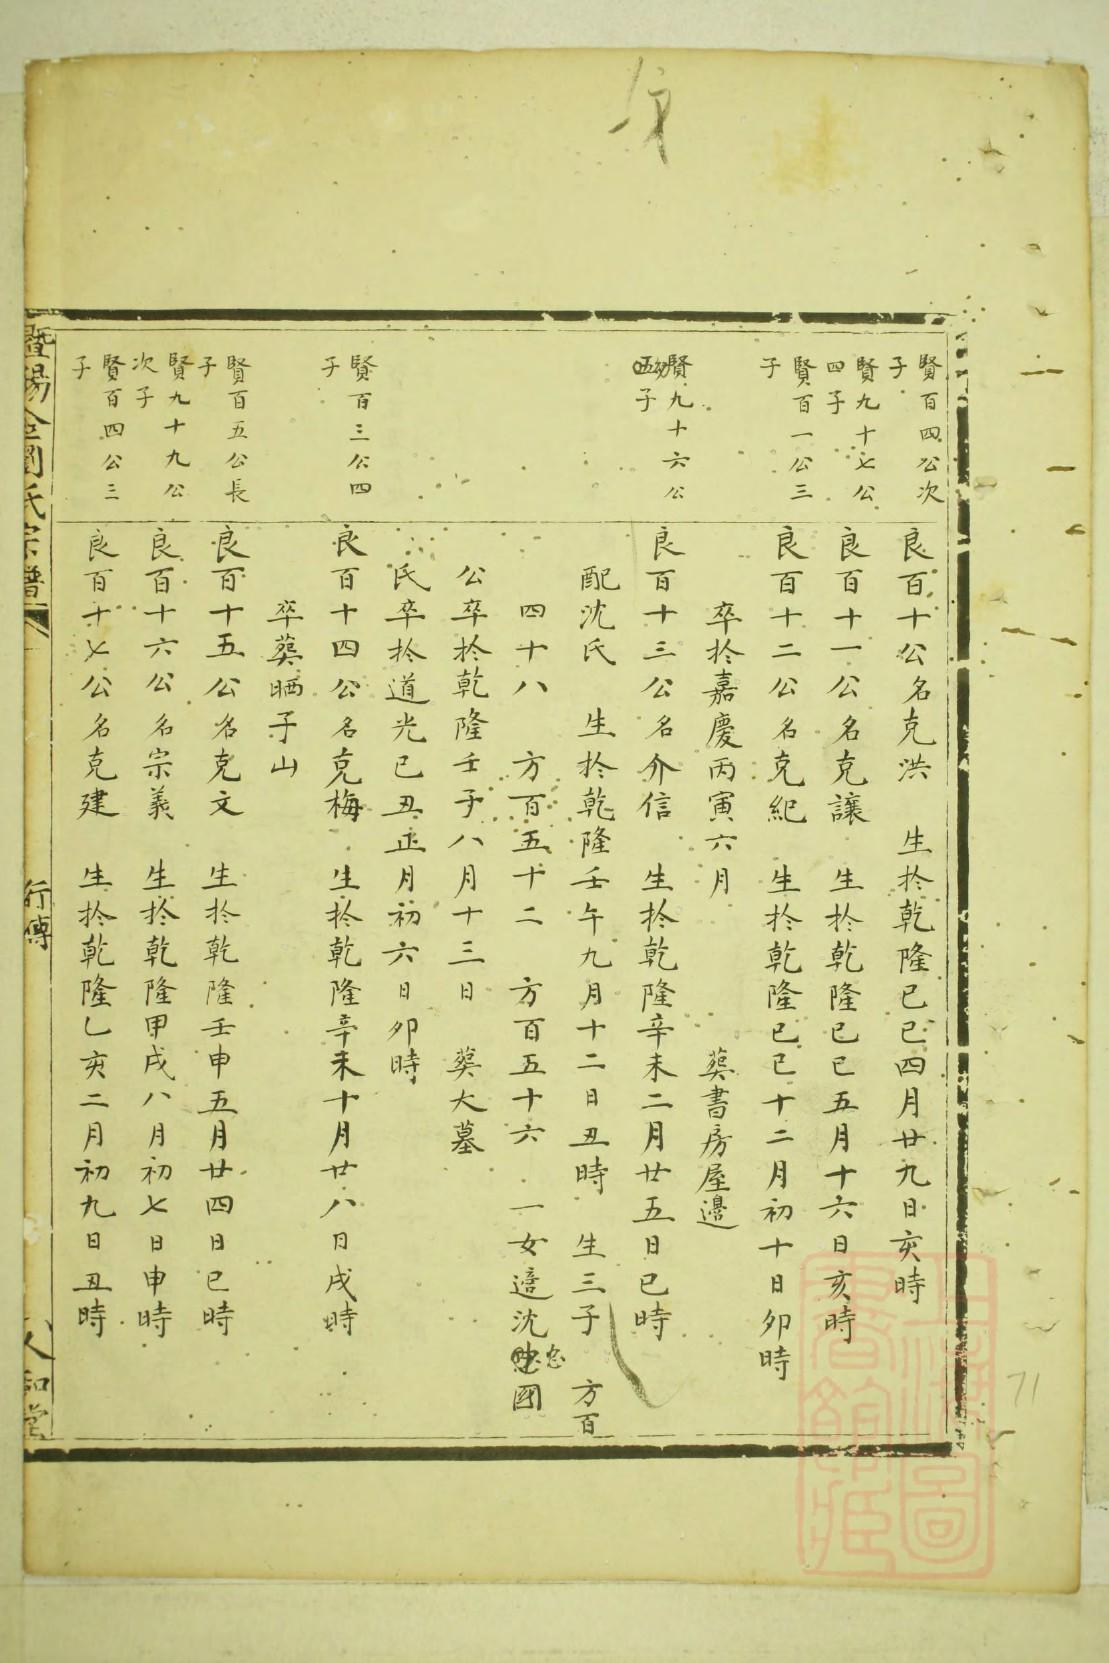 賢百四公次
子
良百十公名克洪 生於乾隆己巳四月廿九日亥時
賢九十七公
四子
良百十一公名克讓 生於乾隆己巳五月十六日亥時
賢百一公三
子
良百十二公名克紀 生於乾隆己巳十二月初十日卯時
卒於嘉慶丙寅六月 葬書房屋邊
賢九十六公
子
良百十三公名介信 生於乾隆辛未二月廿五日巳時
配沈氏 生於乾隆壬午九月十二日丑時 生三子 方百
四十八 方百五十二 方百五十六 一女適沈忠國
公卒於乾隆壬子八月十三日 葬大墓
氏卒於道光己丑正月初六日卯時
賢百三公四
子
良百十四公名克梅 生於乾隆辛未十月廿八日戌時
卒葬晒子山
賢百五公長
子
良百十五公名克文 生於乾隆壬申五月廿四日巳時
賢九十九公
次子
良百十六公名宗義 生於乾隆甲戌八月初七日申時
賢百四公三
子
良百十七公名克建 生於乾隆乙亥二月初九日丑時
暨陽 劉氏宗譜 行傳 人和堂
71